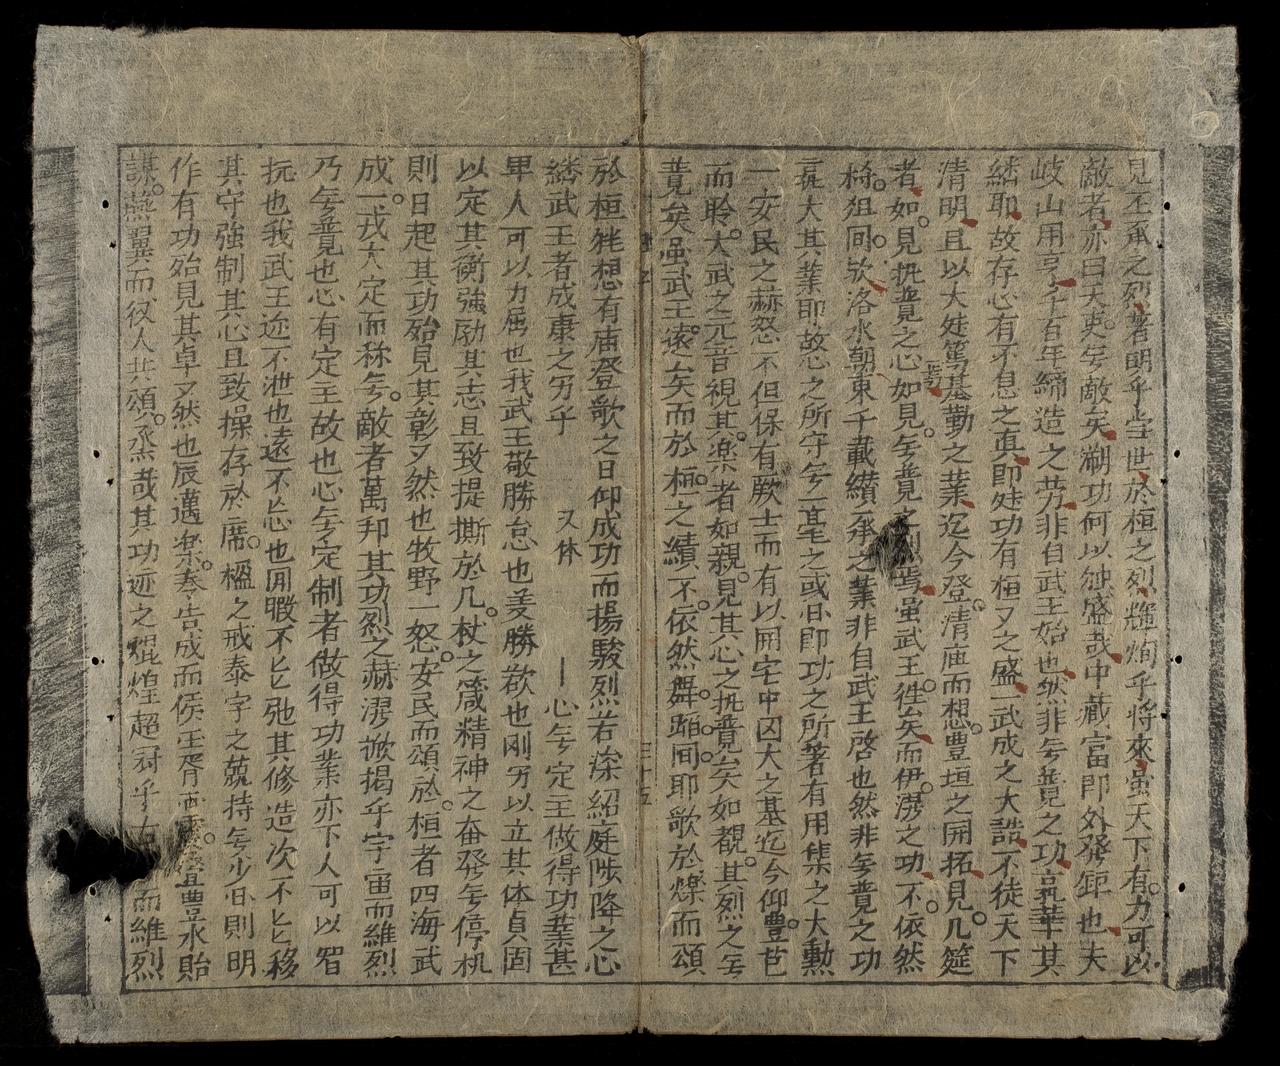 見丕承之烈著明乎当世於桓之烈輝炳乎將來虽天下有力可以
敵者亦曰天吏无敵矣功何以盛哉中蔵富即外發鉅也夫
岐山用亨千百年締造之労非自武王始也然非无竟之功克華其
繇耶故存心有不息之真即功有桓又之盛一武成之大誥不徒天下
清明且以大篤基勤之業迄今登清庙而想豊垣之開拓見几筵
者如見执竟之心如見无竟之烈焉虽武王徃矣而伊濯之功不依然
徂回欤洛水朝東千載纉承之業非自武王啓也然非无竟之功
大其業耶故心之所守无一毫之或即功之所著有用集之大勲
一安民之赫怒不但保有厥士而有以開宅中囚大之基迄今仰豊芑
而聆大武之元音視其楽者如親見其心之执竟矣如覩其烈之无
竟矣虽武王遠矣而於桓之績不依然舞蹈間耶歌於爍而頌
於桓想有庙登歌之日仰成功而揚駿烈若深紹庭陟降之心
繇武王者成康之労乎 又体 一心无定主做得功業甚
卑人可以力屈也我武王敬勝怠也义勝欲也刚労以立其体貞固
以定其衡強励其志且致提撕於几杖之箴精神之奋發无停机
則日起其功殆見其彰又然也牧野一怒安民而頌於桓者四海武
成一戎大定而称无敵者萬邦其功烈之赫濯掀揭乎宇宙而維烈
乃无竟也心有定主故也心无定制者做得功業亦下人可以智
抗也我武王迩不泄也遠不忘也閒暇不以弛其修造次不以移
其守強制其心且致操存於席楹之戒泰宇之兢持无少則明
作有功殆見其卓又然也辰邁楽奏告成而侯王胥豊水貽
謀燕翼而役人共頌丞哉其功迹之焜煌超冠乎而維烈
三十五